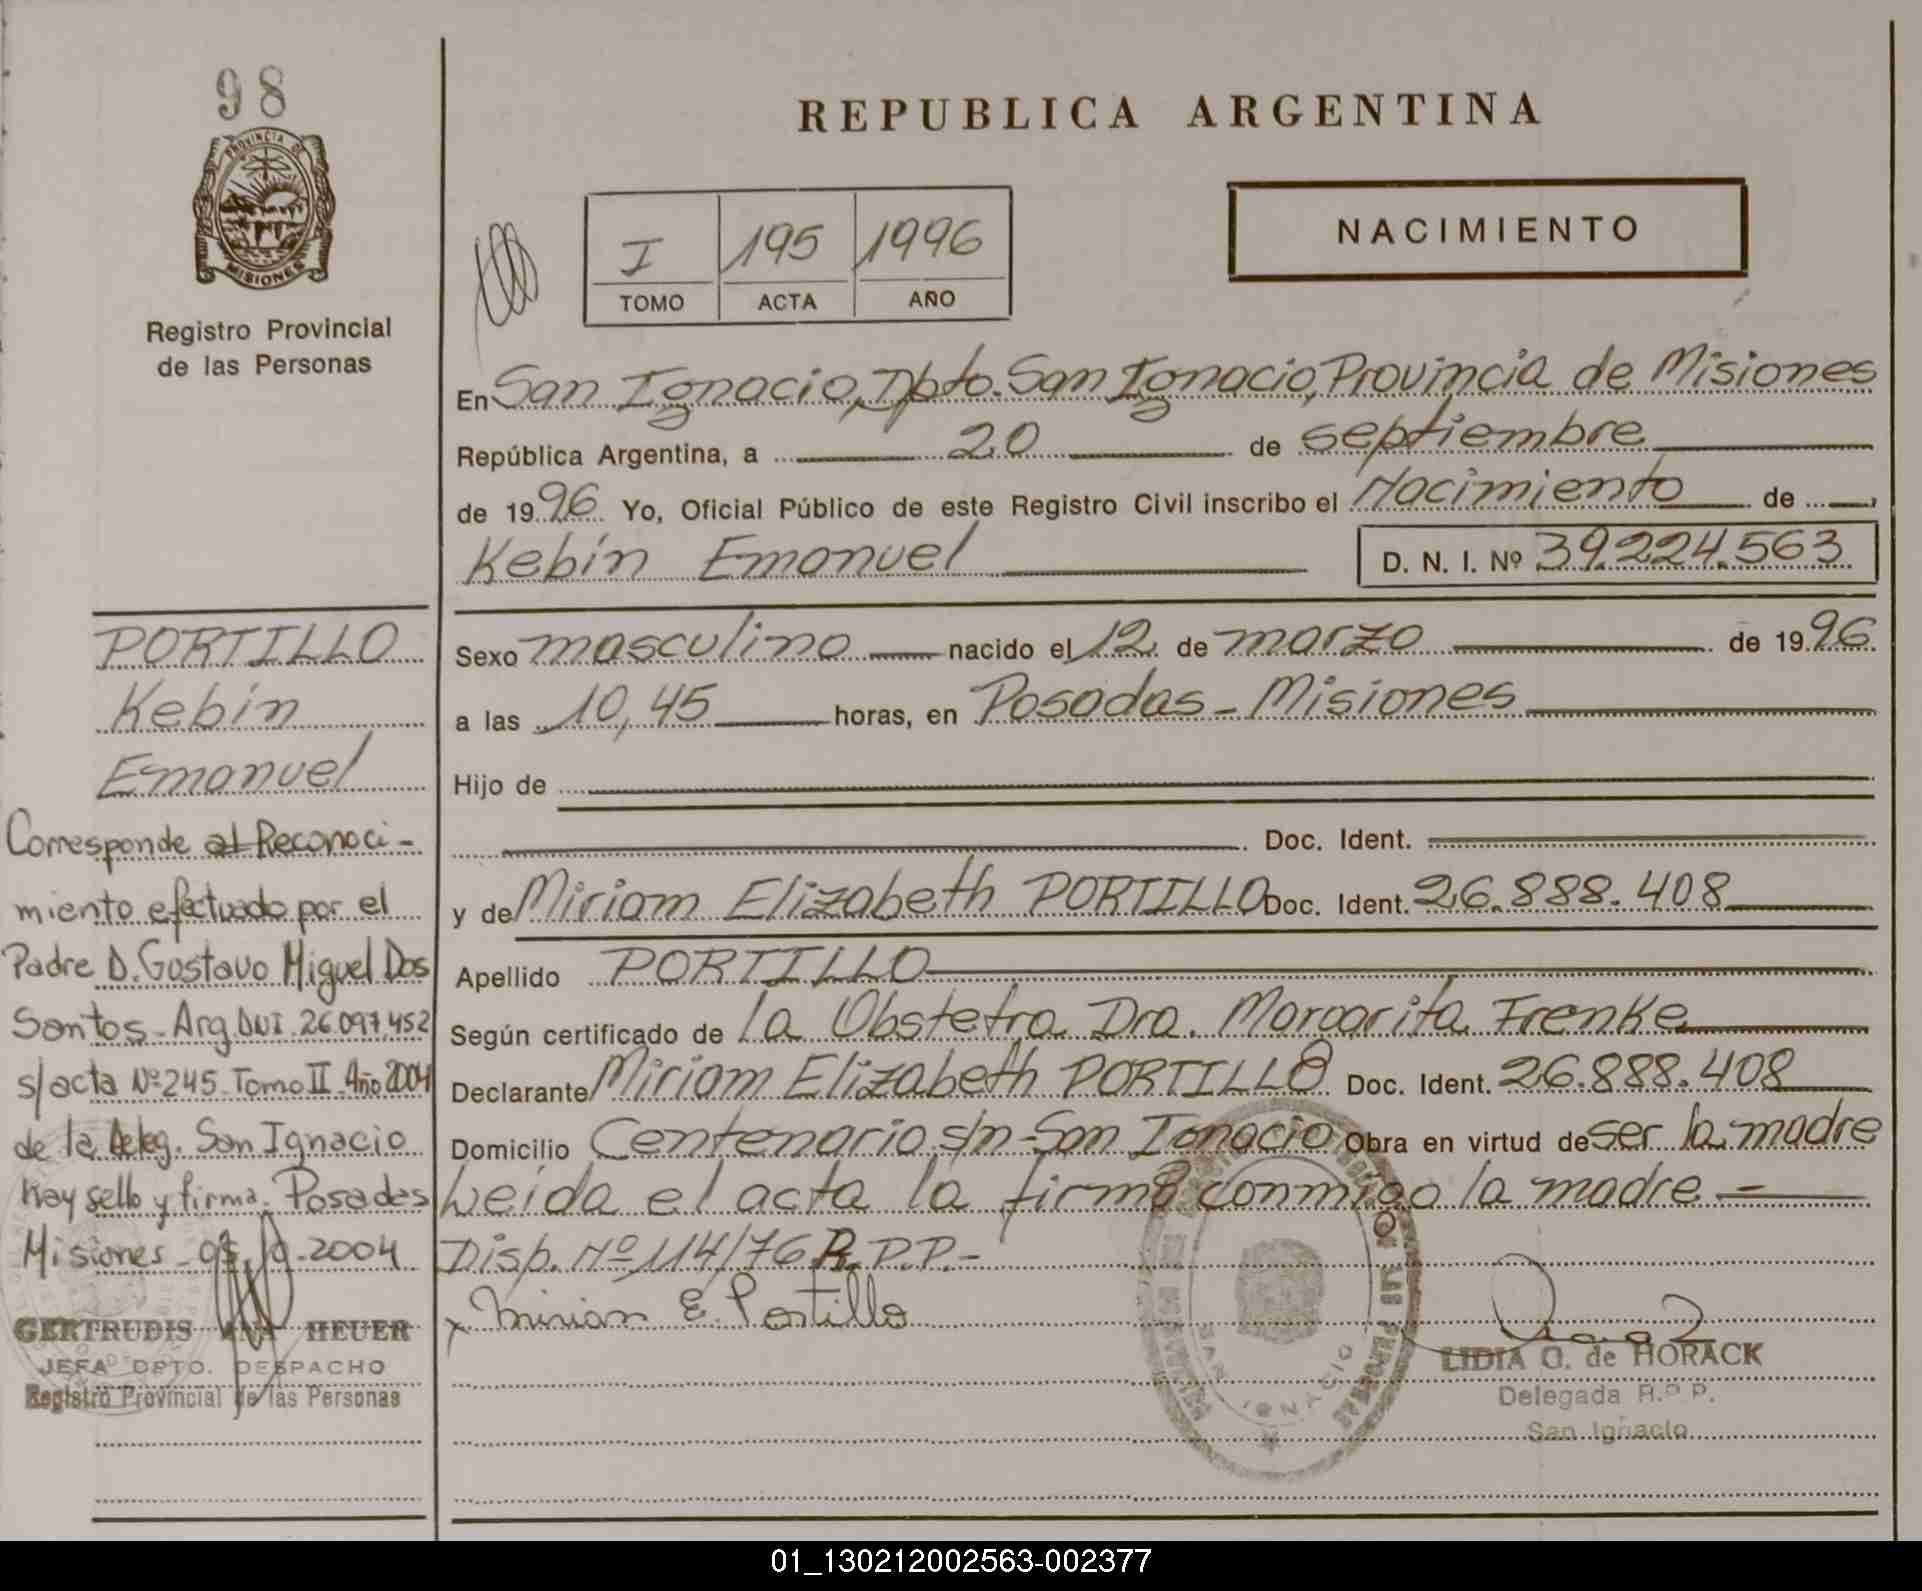 98
PROVINCIA DE
MISIONES
Registro Provincial
de las Personas
REPUBLICA ARGENTINA
I 195 1996
TOMO ACTA AÑO
NACIMIENTO
En San Ignacio, Dpto. San Ignacio, Provincia de Misiones
República Argentina, a 20 de septiembre
de 1996 Yo, Oficial Público de este Registro Civil inscribo el Nacimiento de
Kebin Emanuel D. N. I. Nº 39.224.563
PORTILLO
Kebin
Emanuel
Corresponde al Reconoci-
miento efectuado por el
Padre D. Gustavo Miguel Dos
Santos - Arg. DNI. 26.097.452
s/acta Nº 245 - Tomo II - Año 2004
de la Deleg. San Ignacio
Hay sello y firma. Posadas
Misiones - 10.2004
GERTRUDIS ANA HEUER
JEFA DPTO. DESPACHO
Registro Provincial de las Personas
Sexo masculino nacido el 12 de marzo de 1996
a las 10,45 horas, en Posadas - Misiones
Hijo de
Doc. Ident.
y de Miriam Elizabeth PORTILLO Doc. Ident. 26.888.408
Apellido PORTILLO
Según certificado de la Obstetra Dra. Margarita Frenke
Declarante Miriam Elizabeth PORTILLO Doc. Ident. 26.888.408
Domicilio Centenario s/n - San Ignacio Obra en virtud de ser la madre
Leida el acta la firma conmigo la madre -
Disp. Nº 114/76 R.P.P.-
x Mirian E. Portillo
SAN IGNACIO
LIDIA O. de HORACK
Delegada R.P.P.
San Ignacio
01_130212002563-002377